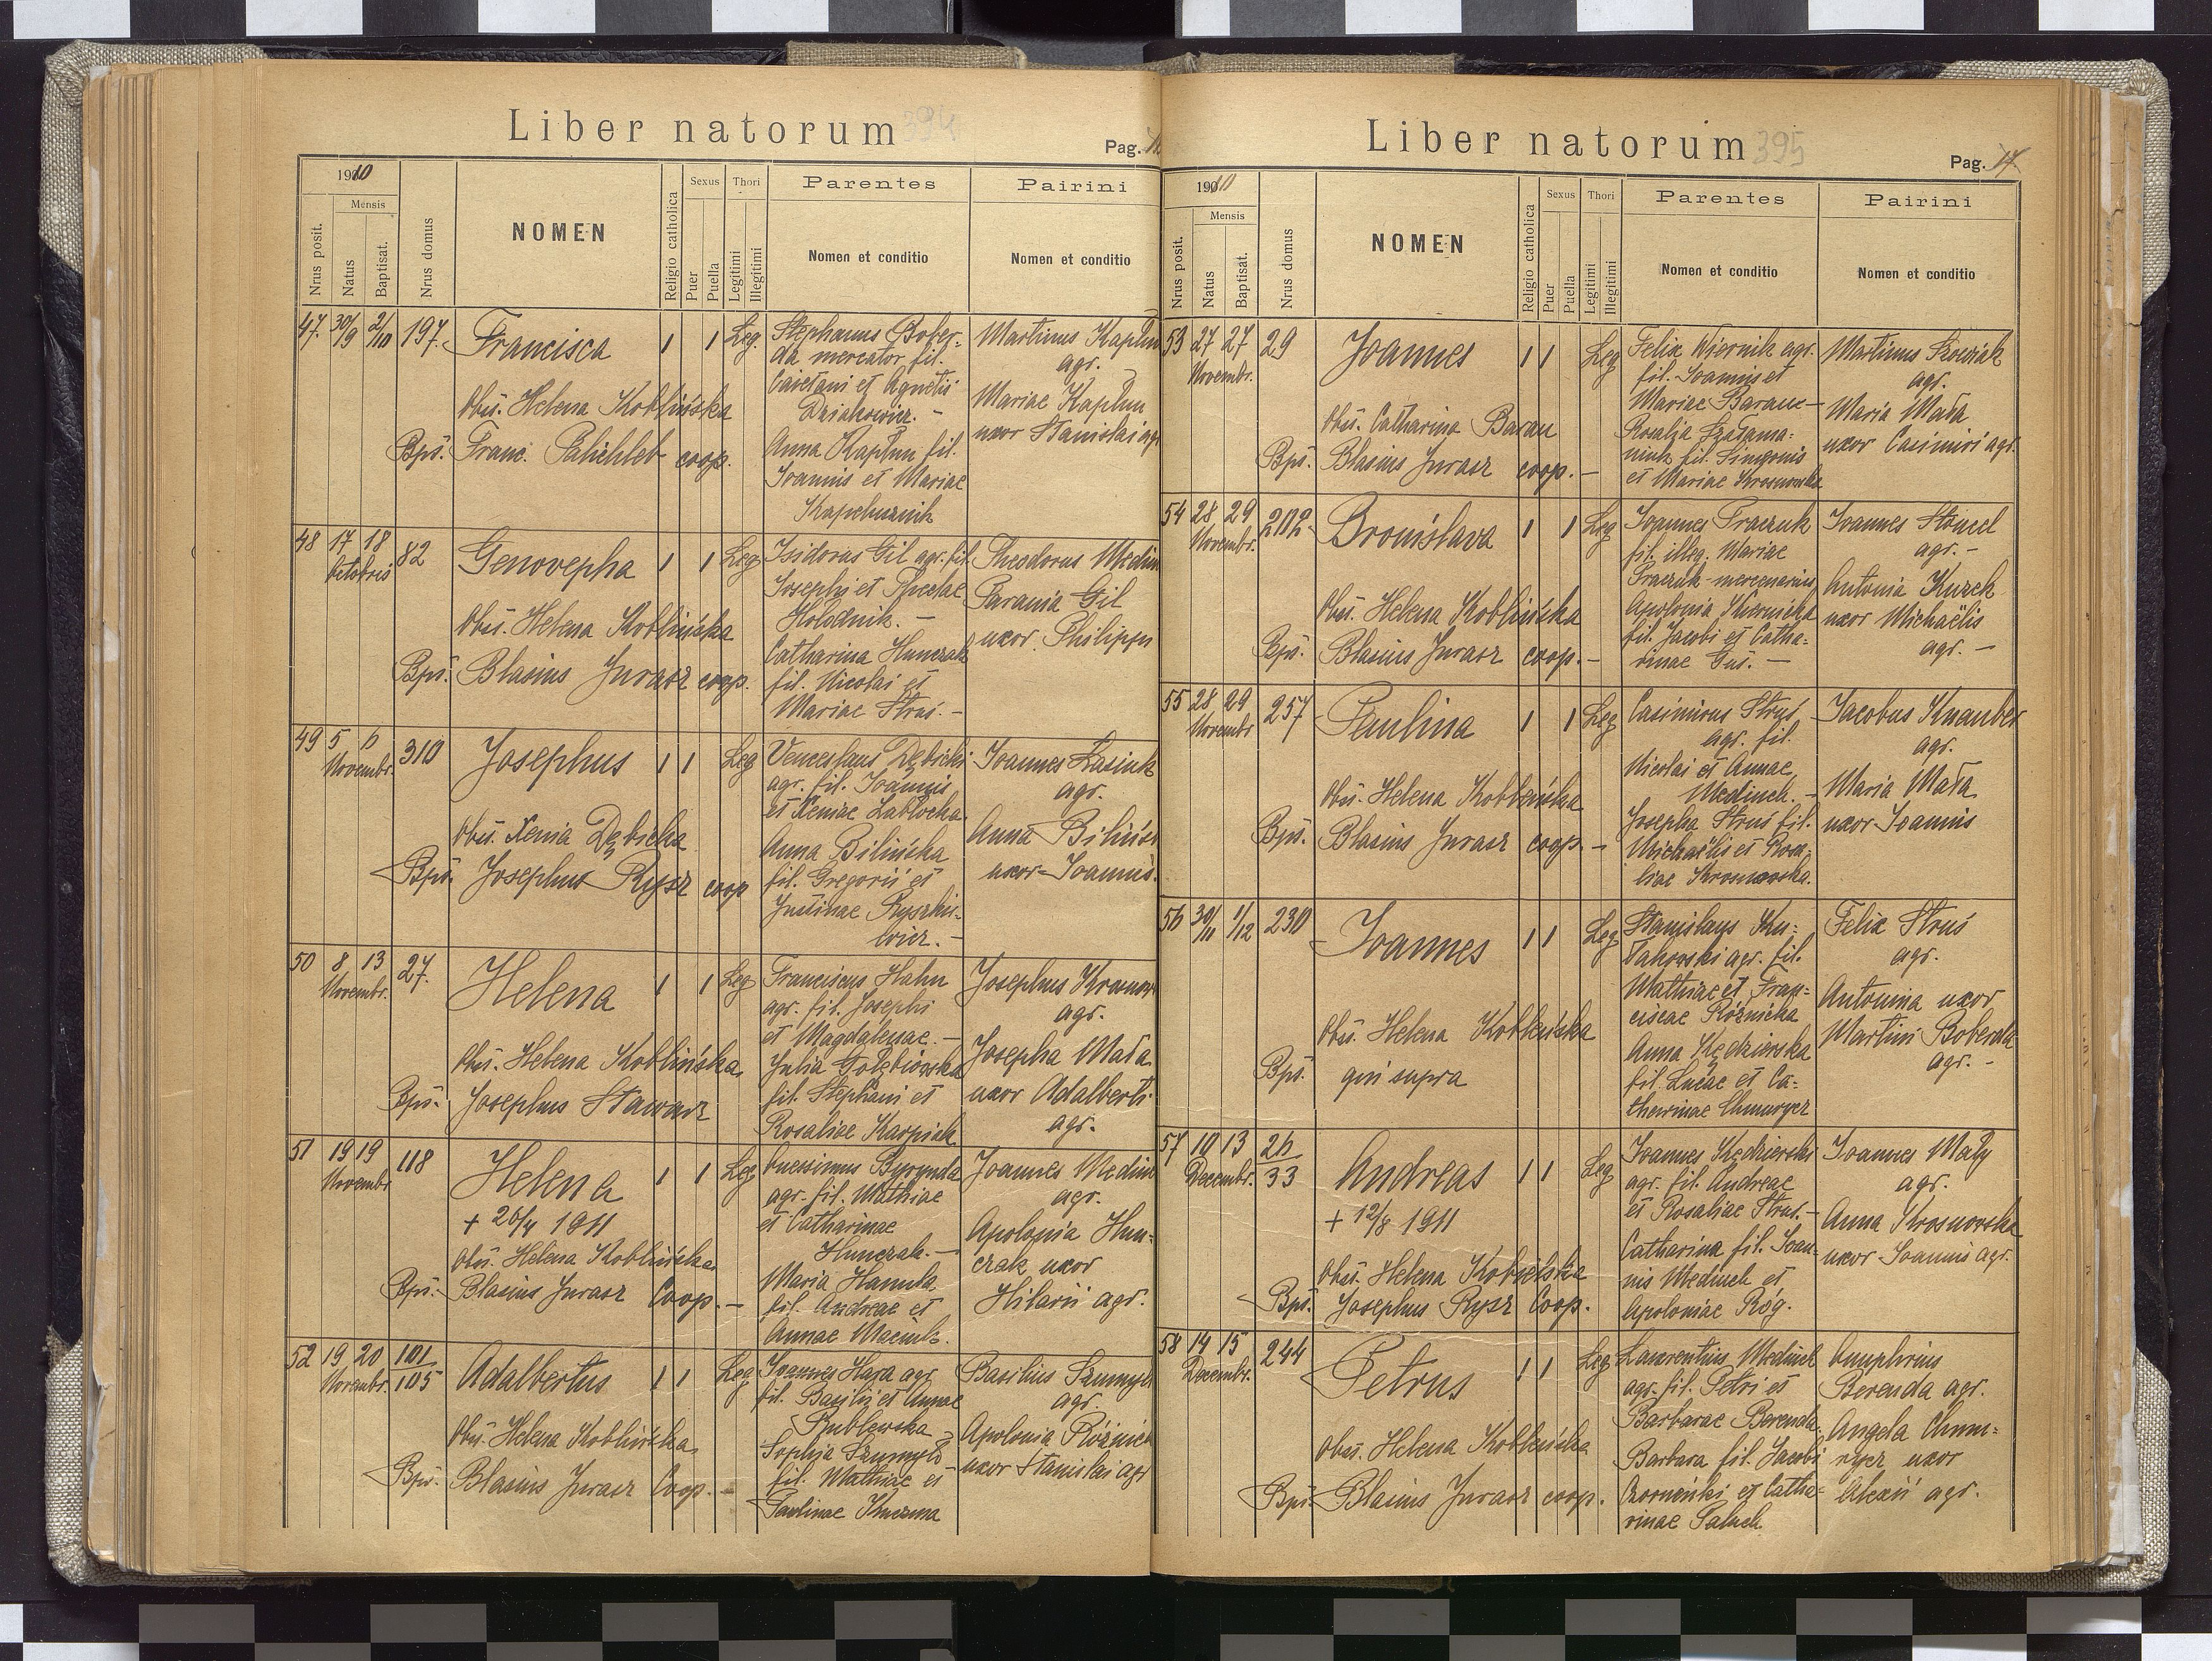 Liber natorum 394
Pag.
1910
Mensis
Nrus posit.
Natus
Baptisat.
Nrus domus
NOMEN
Religio catholica
Sexus
Puer
Puella
Thori
Legitimi
Illegitimi
Parentes
Nomen et conditio
Pairini
Nomen et conditio
47. 30/9 2/10 197. Francisca 1 1 Leg.
Obst. Helena Koblińska
Bps. Franc. Palichleb coop.
Stephanus Bober-
da mercator fil.
Caietani et Agnetis
Dziakowicz. -
Anna Kaplun fil.
Joannis et Mariae
Kapeluznik
Martinus Kaplun
agr.
Mariae Kaplun
uxor Stanislai agr.
48 17 18 82 Genovepha 1 1 Leg
Octobris
Obst. Helena Koblińska
Bps. Blasius Jurasz coop.
Isidorus Gil agr. fil.
Josephi et Theclae
Holodnik. -
Catharina Hunczak
fil. Nicolai et
Mariae Strus. -
Theodorus Medin
Parania Gil
uxor Philippi
49 5 6 310 Josephus 1 1 Leg
Novembr.
Obst. Xenia Dębicka
Bps. Josephus Rysz coop
Venceslaus Dębicki
agr. fil. Joannis
et Xeniae Zabłocka.
Anna Bilińska
fil. Gregorii et
Justinae Ryszkie-
wicz. -
Joannes Łasiuk
agr.
Anna Bilińs
uxor Joannis.
50 8 13 27. Helena 1 1 Leg
Novembr.
Obst. Helena Koblińska
Bps. Josephus Stawarz
Franciscus Hahn
agr. fil. Josephi
et Magdalenae. -
Julia Gołębiowska
fil. Stephani et
Rosaliae Karpiak
Josephus Krosnow
agr.
Josepha Mała
uxor Adalberti
agr.
51 19 19 118 Helena 1 1 Leg
Novembr
+ 26/4 1911
Obst. Helena Koblińska
Bps. Blasius Jurasz Coop. -
Onessimus Byrynda
agr. fil. Mathiae
et Catharinae
Hunczak. -
Maria Hanula
fil. Andreae et
Annae Maciuk.
Joannes Medin
agr.
Apolonia Hun-
czak uxor
Hilarii agr.
52 19 20 101/105 Adalbertus 1 1 Leg
Novembr.
Obst. Helena Koblińska
Bps. Blasius Jurasz Coop. -
Joannes Hara agr
fil. Basilii et Annae
Rublewska
Sophia Szumyło
fil. Mathiae et
Paulinae Kuczma
Basilius Szumyło
agr.
Apolonia Różnick
uxor Stanislai agr
Liber natorum 395
Pag. 17.
1910
Mensis
Nrus posit.
Natus
Baptisat.
Nrus domus
NOMEN
Religio catholica
Sexus
Puer
Puella
Thori
Legitimi
Illegitimi
Parentes
Nomen et conditio
Pairini
Nomen et conditio
53 27 27 29 Joannes 1 1 Leg
Novembr.
Obst. Catharina Baran
Bps. Blasius Jurasz coop. -
Felix Wiernik agr.
fil. Joannis et
Mariae Baran -
Rosalia Szałama-
niuk fil. Simeonis
et Mariae Krosnowska
Martinus
agr.
Maria Mała
uxor Casimiri agr.
54 28 29 202 Bronislava 1 1 Leg
Novembr.
Obst. Helena Koblińska
Bps. Blasius Jurasz coop. -
Joannes Traczuk
fil. illeg. Mariae
Traczuk - mercenarius
Apolonia Skiernicka
fil. Jacobi et Catha-
rinae Guś. -
Joannes Stancel
agr. -
Antonia Kurek
uxor Michaëlis
agr. -
55 28 29 257 Paulina 1 1 Leg
Novembr
Obst. Helena Koblińska
Bps. Blasius Jurasz coop. -
Casimirus Strus
agr. fil.
Nicolai et Annae
Medinck. -
Josepha Strus fil.
Michaëlis et Rosa-
liae Krosnowska.
Jacobus Knauber
agr.
Maria Mała
uxor Joannis
56 30/11 1/12 230 Joannes 1 1 Leg
Obst. Helena Koblińska
Bps. qui supra
Stanislaus Ku-
łakowski agr. fil.
Mathiae et Fran-
ciscae Różnicka
Anna Kędzierska
fil. Lucae et Ca-
therinae Chmurzer
Felix Struś
agr.
Antonina uxor
Martini Boberda
agr. -
57 10 13 26/33 Andreas 1 1 Leg
Decembr.
+ 12/8 1911
Obst. Helena Kobielska
Bps. Josephus Rysz Coop.
Joannes Kędzierski
agr. fil. Andreae
et Rosaliae Strus. -
Catharina fil. Joan-
nis Medinck et
Apoloniae Róg.
Joannes Mały
agr.
Anna Krosnowska
uxor Joannis agr.
58 14 15 244 Petrus 1 1 Leg
Decembr.
Obst. Helena Koblińska
Bps. Blasius Jurasz coop.
Laurentius Medinck
agr. fil. Petri et
Barbarae Berenda.
Barbara fil. Jacobi
Czorneński et Catha-
rinae Paluch
Onuphrius
Berenda agr.
Angela Chmu-
rzer uxor
Alexii agr.